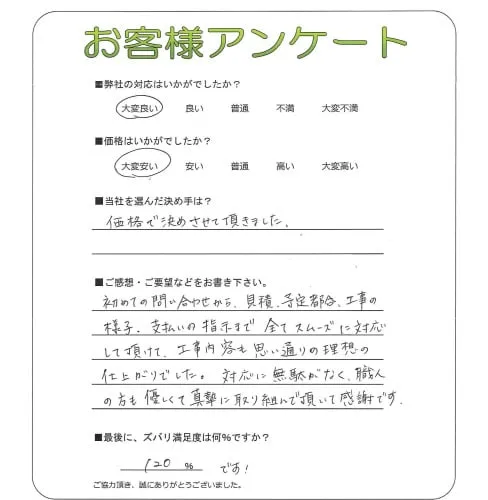 お客様アンケート
■弊社の対応はいかがでしたか？
大変良い 良い 普通 不満 大変不満
■価格はいかがでしたか？
大変安い 安い 普通 高い 大変高い
■当社を選んだ決め手は？
価格で決めさせて頂きました。
■ご感想・ご要望などをお書き下さい。
初めての問い合わせから、見積、予定都合、工事の
様子、支払いの指示まで全てスムーズに対応
して頂けて、工事内容も思い通りの理想の
仕上がりでした。対応に無駄がなく、職人
の方も優しくて真摯に取り組んで頂いて感謝です。
■最後に、ズバリ満足度は何%ですか？
120 % です!
ご協力頂き、誠にありがとうございました。